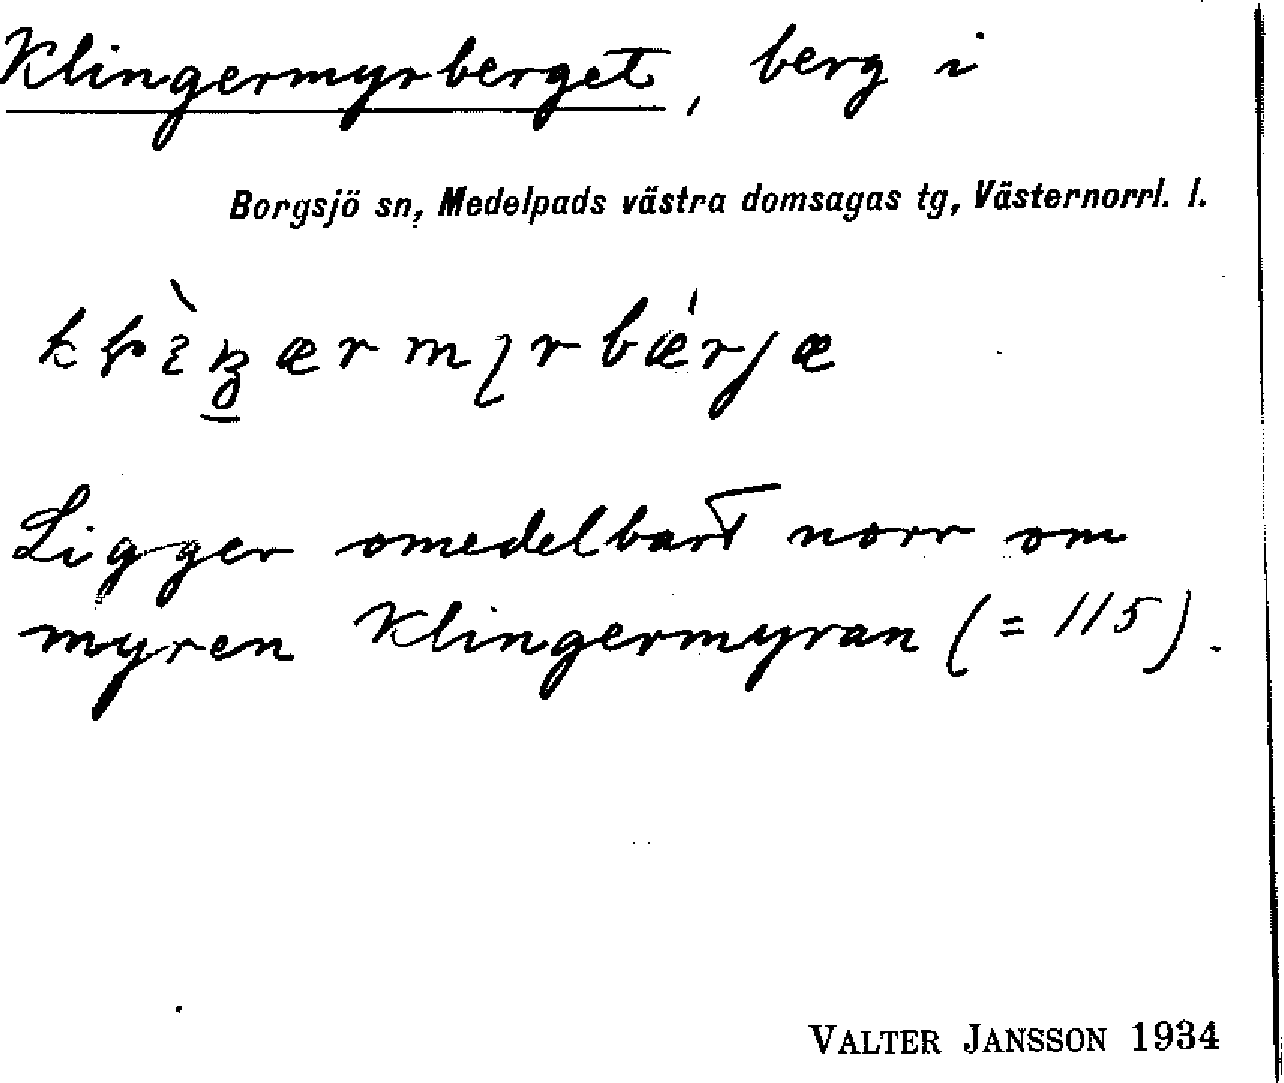 Klingermyrberget, berg i
Borgsjö sn, Medelpads västra domsagas tg, Västernorrl. l.
Ligger omedelbart norr om
myren Klingermyran (= 115).
VALTER JANSSON 1934